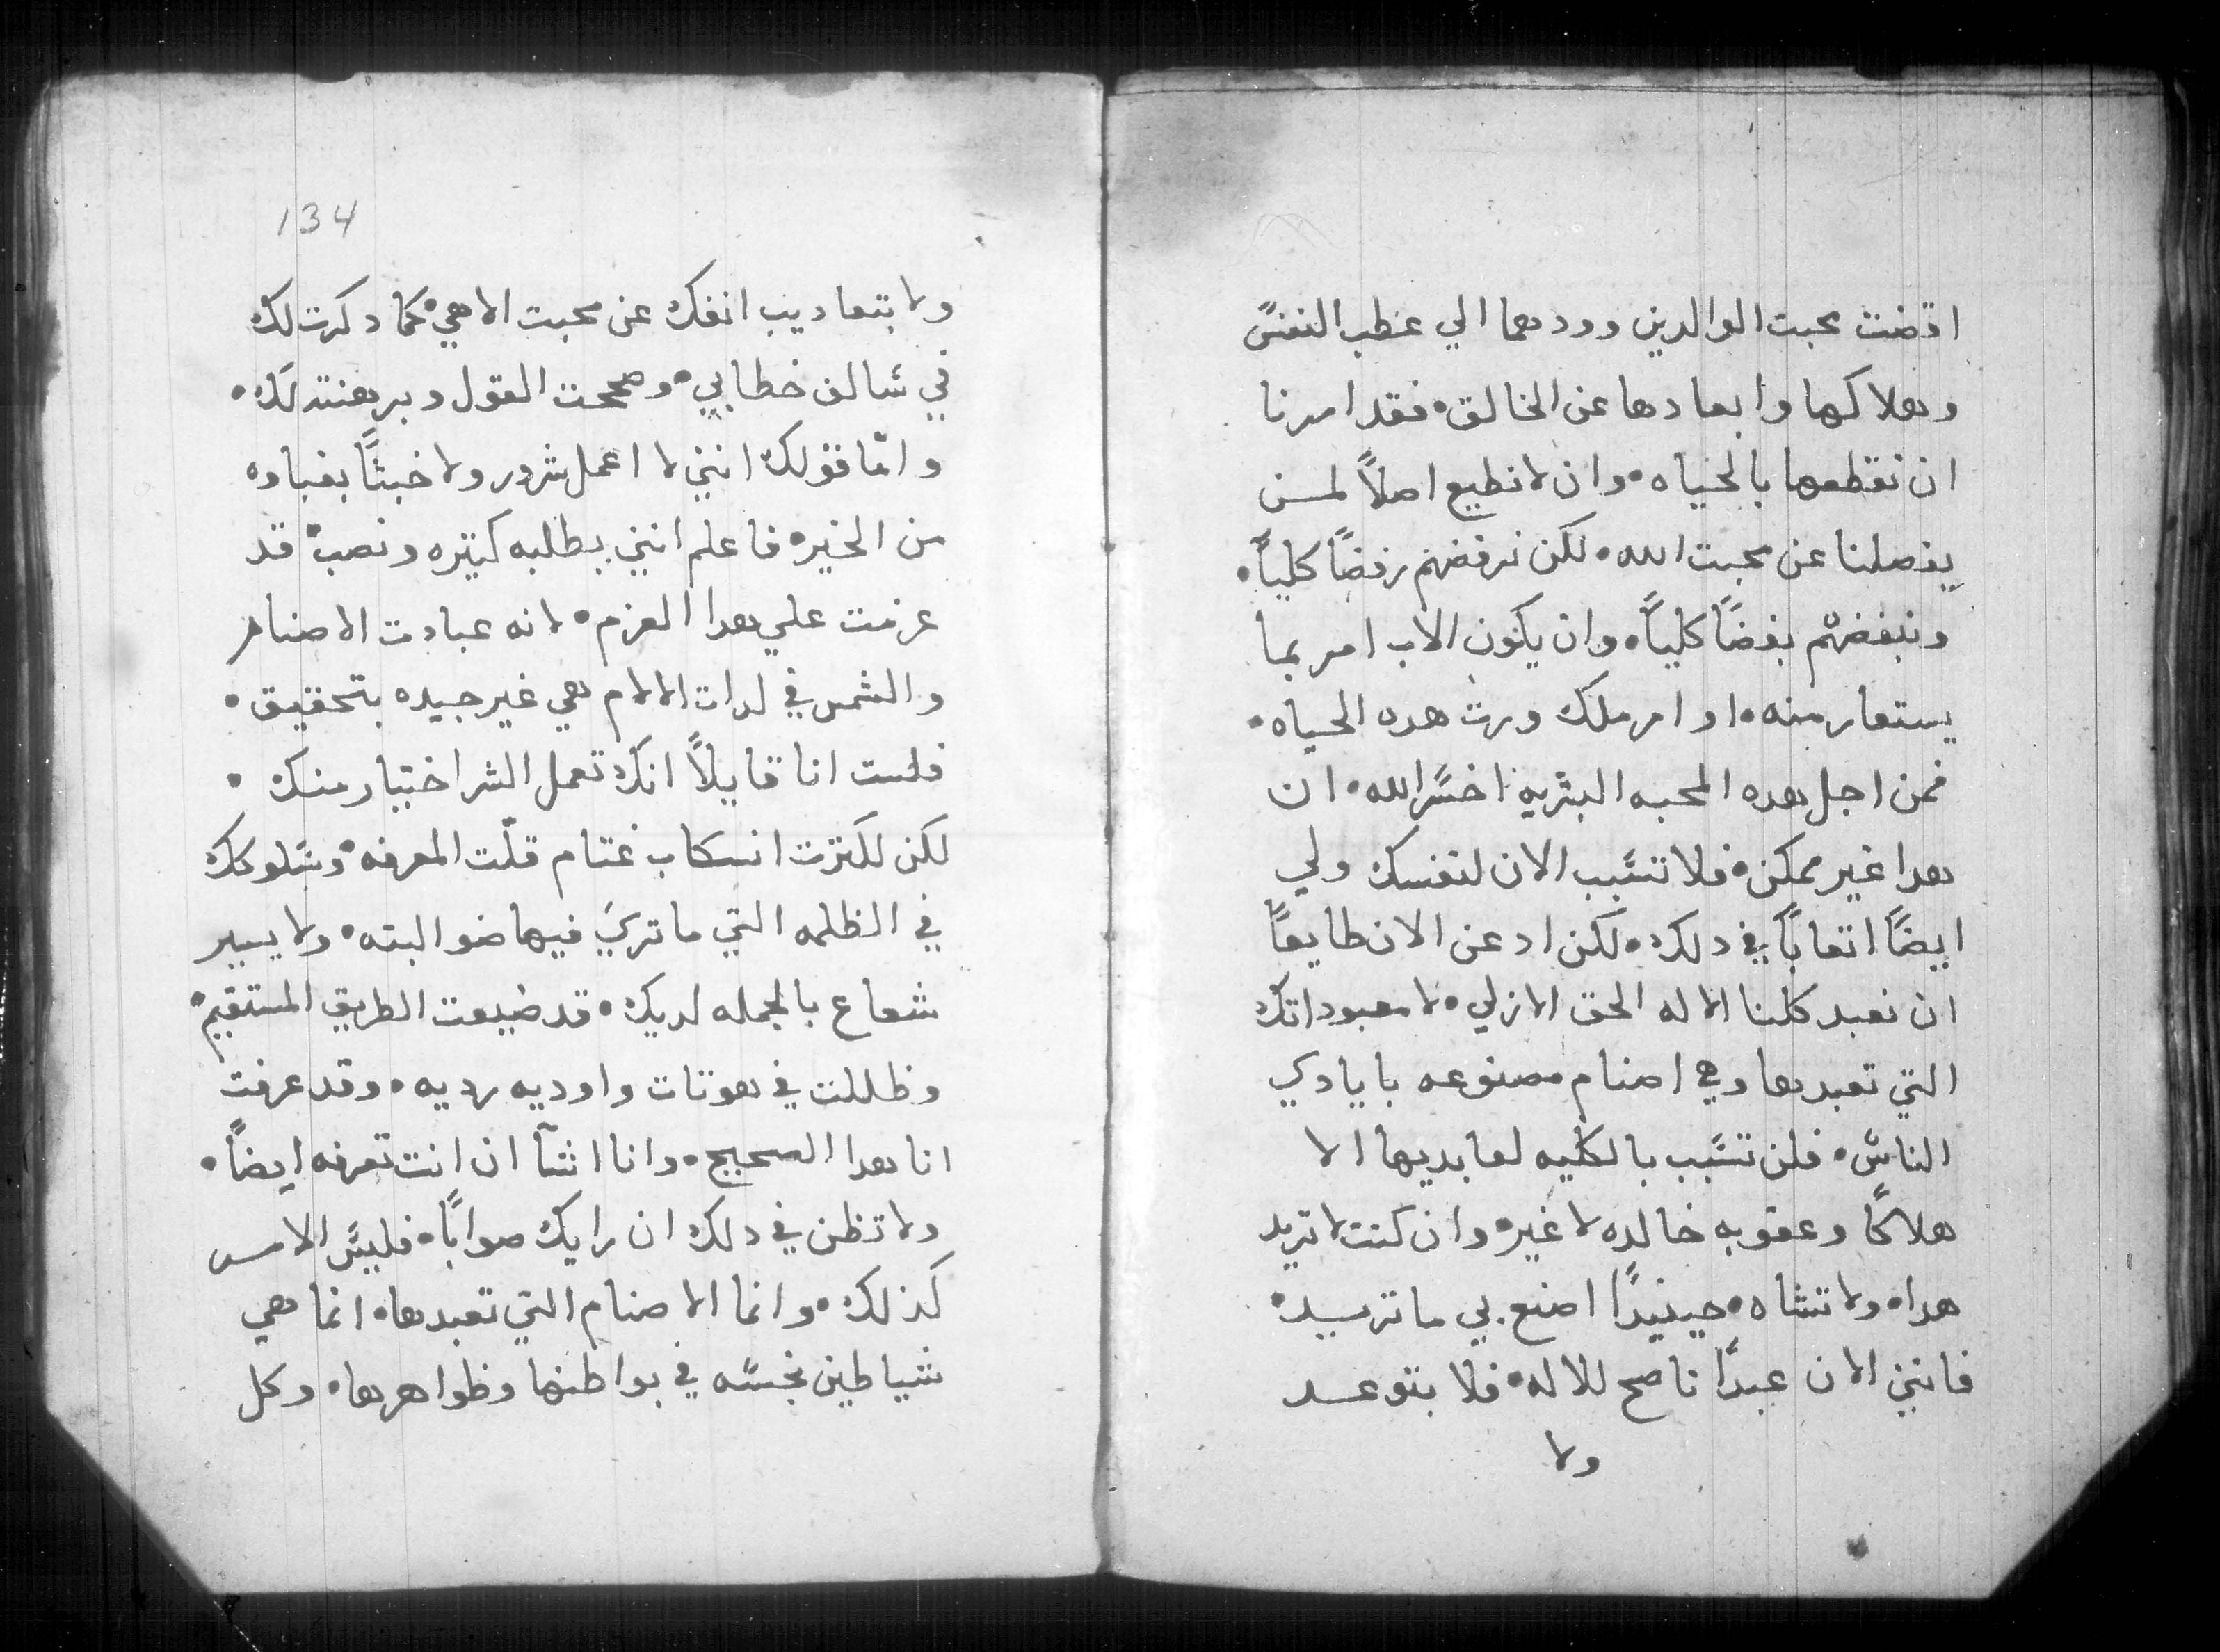 اقضت محبت الوالدين وودهما الي عطب النفس
وهلاكها وابعادها عن الخالق • فقد امرنا
ان نقطعها بالحياه • وان لا نطيع اصلاً لمن
يفصلنا عن محبت الله • لكن نرفضهم رفضاً كلياً •
ونبغضهم بغضاً كلياً • وان يكون الاب امر بما
يستعار منه • او امر ملك ورث هده الحياه •
فمن اجل هده المحبه البشريه اخسر الله • ان
هدا غير ممكن • فلا تسبب الان لنفسك ولي
ايضاً اتعاباً في دلك • لكن ادعن الان طايعاً
ان نعبد كلنا الاله الحق الازلي • لا معبوداتك
التي تعبدها وهي اصنام مصنوعه بايادي
الناس • فلن تسبب بالكليه لعابديها الا
هلاكا وعقوبه خالده لا غير • وان كنت لا تريد
هدا • ولا تشاه • حينيداً اصنع بي ما تريد •
فانني الان عبداً ناصح للاله • فلا بتوعد
ولا
134
ولا بتعاديب انفك عن محبت الاهي • كما دكرت لك
في سالف خطابي • وصححت القول وبرهنته لك •
وامّا قولك انني لا اعمل شرور ولا خبثاً بغباوه
من الخير • فاعلم انني بطلبه كتيره ونصب • قد
عزمت علي هدا العزم • لانه عبادت الاصنام
والشمس في لدات الالام هي غير جيده بتحقيق •
فلست انا قايلاً انك تعمل الشر اختيار منك •
لكن لكترت انسكاب غتام قلّت المعرفه • وسلوكك
في الظلمه التي ما تري فيها ضو البته • ولا يسير
شعاع بالجمله لديك • قد ضيعت الطريق المستقيم •
وظللت في هوتات واوديه رديه • وقد عرفت
انا هدا الصحيح • وانا اشآ ان انت تعرفه ايضاً •
ولا تظن في دلك ان رايك صواباً • فليس الامر
كذلك • وانما الاصنام التي تعبدها • انما هي
شياطين نجسه في بواطنها وظواهرها • وكل